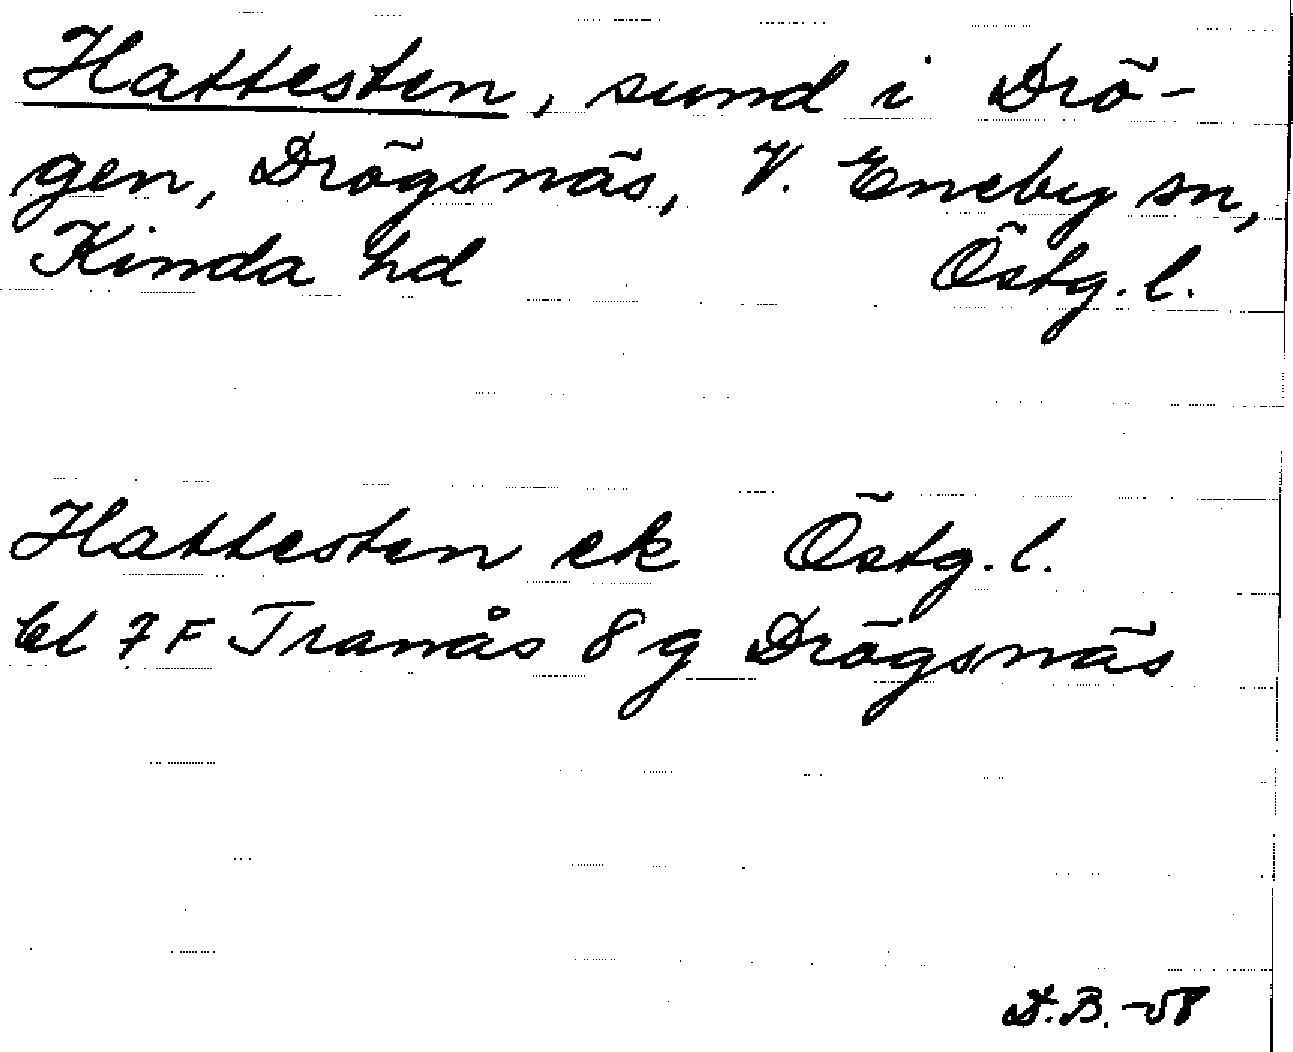 Hattesten, sund i Drö-
gen, Drögsnäs, V. Eneby sn,
Kinda hd Östg. l.
Hattesten ek Östg. l.
bl 7F Tranås 8g Drögsnäs
D.B. -58